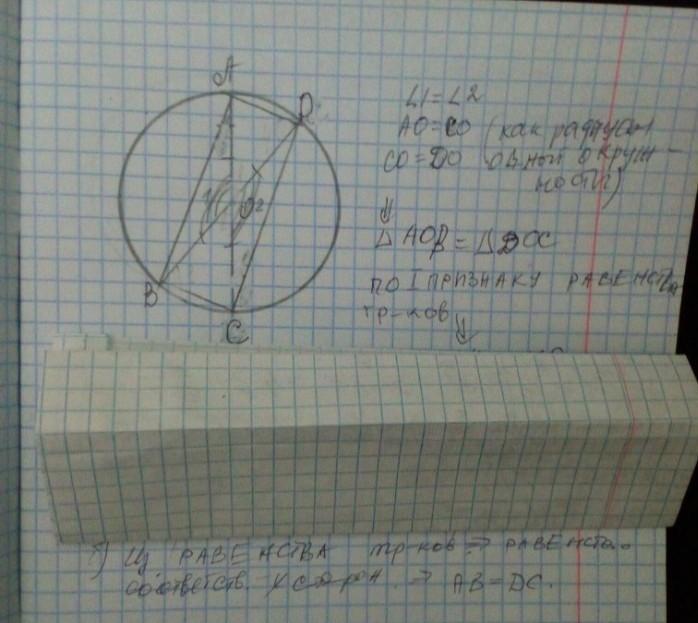 A
D
1
O
2
B
C
∠1=∠2
AO=CO (как радиусы
CO=DO одной окруж-
ности)
⇓
△AOB=△DOC
ПО I ПРИЗНАКУ РАВЕНСТВА
тр-ков
⇓
б) Из РАВЕНСТВА тр-ков ⇒ РАВЕНСТВО
соответств. сторон. ⇒ AB=DC.